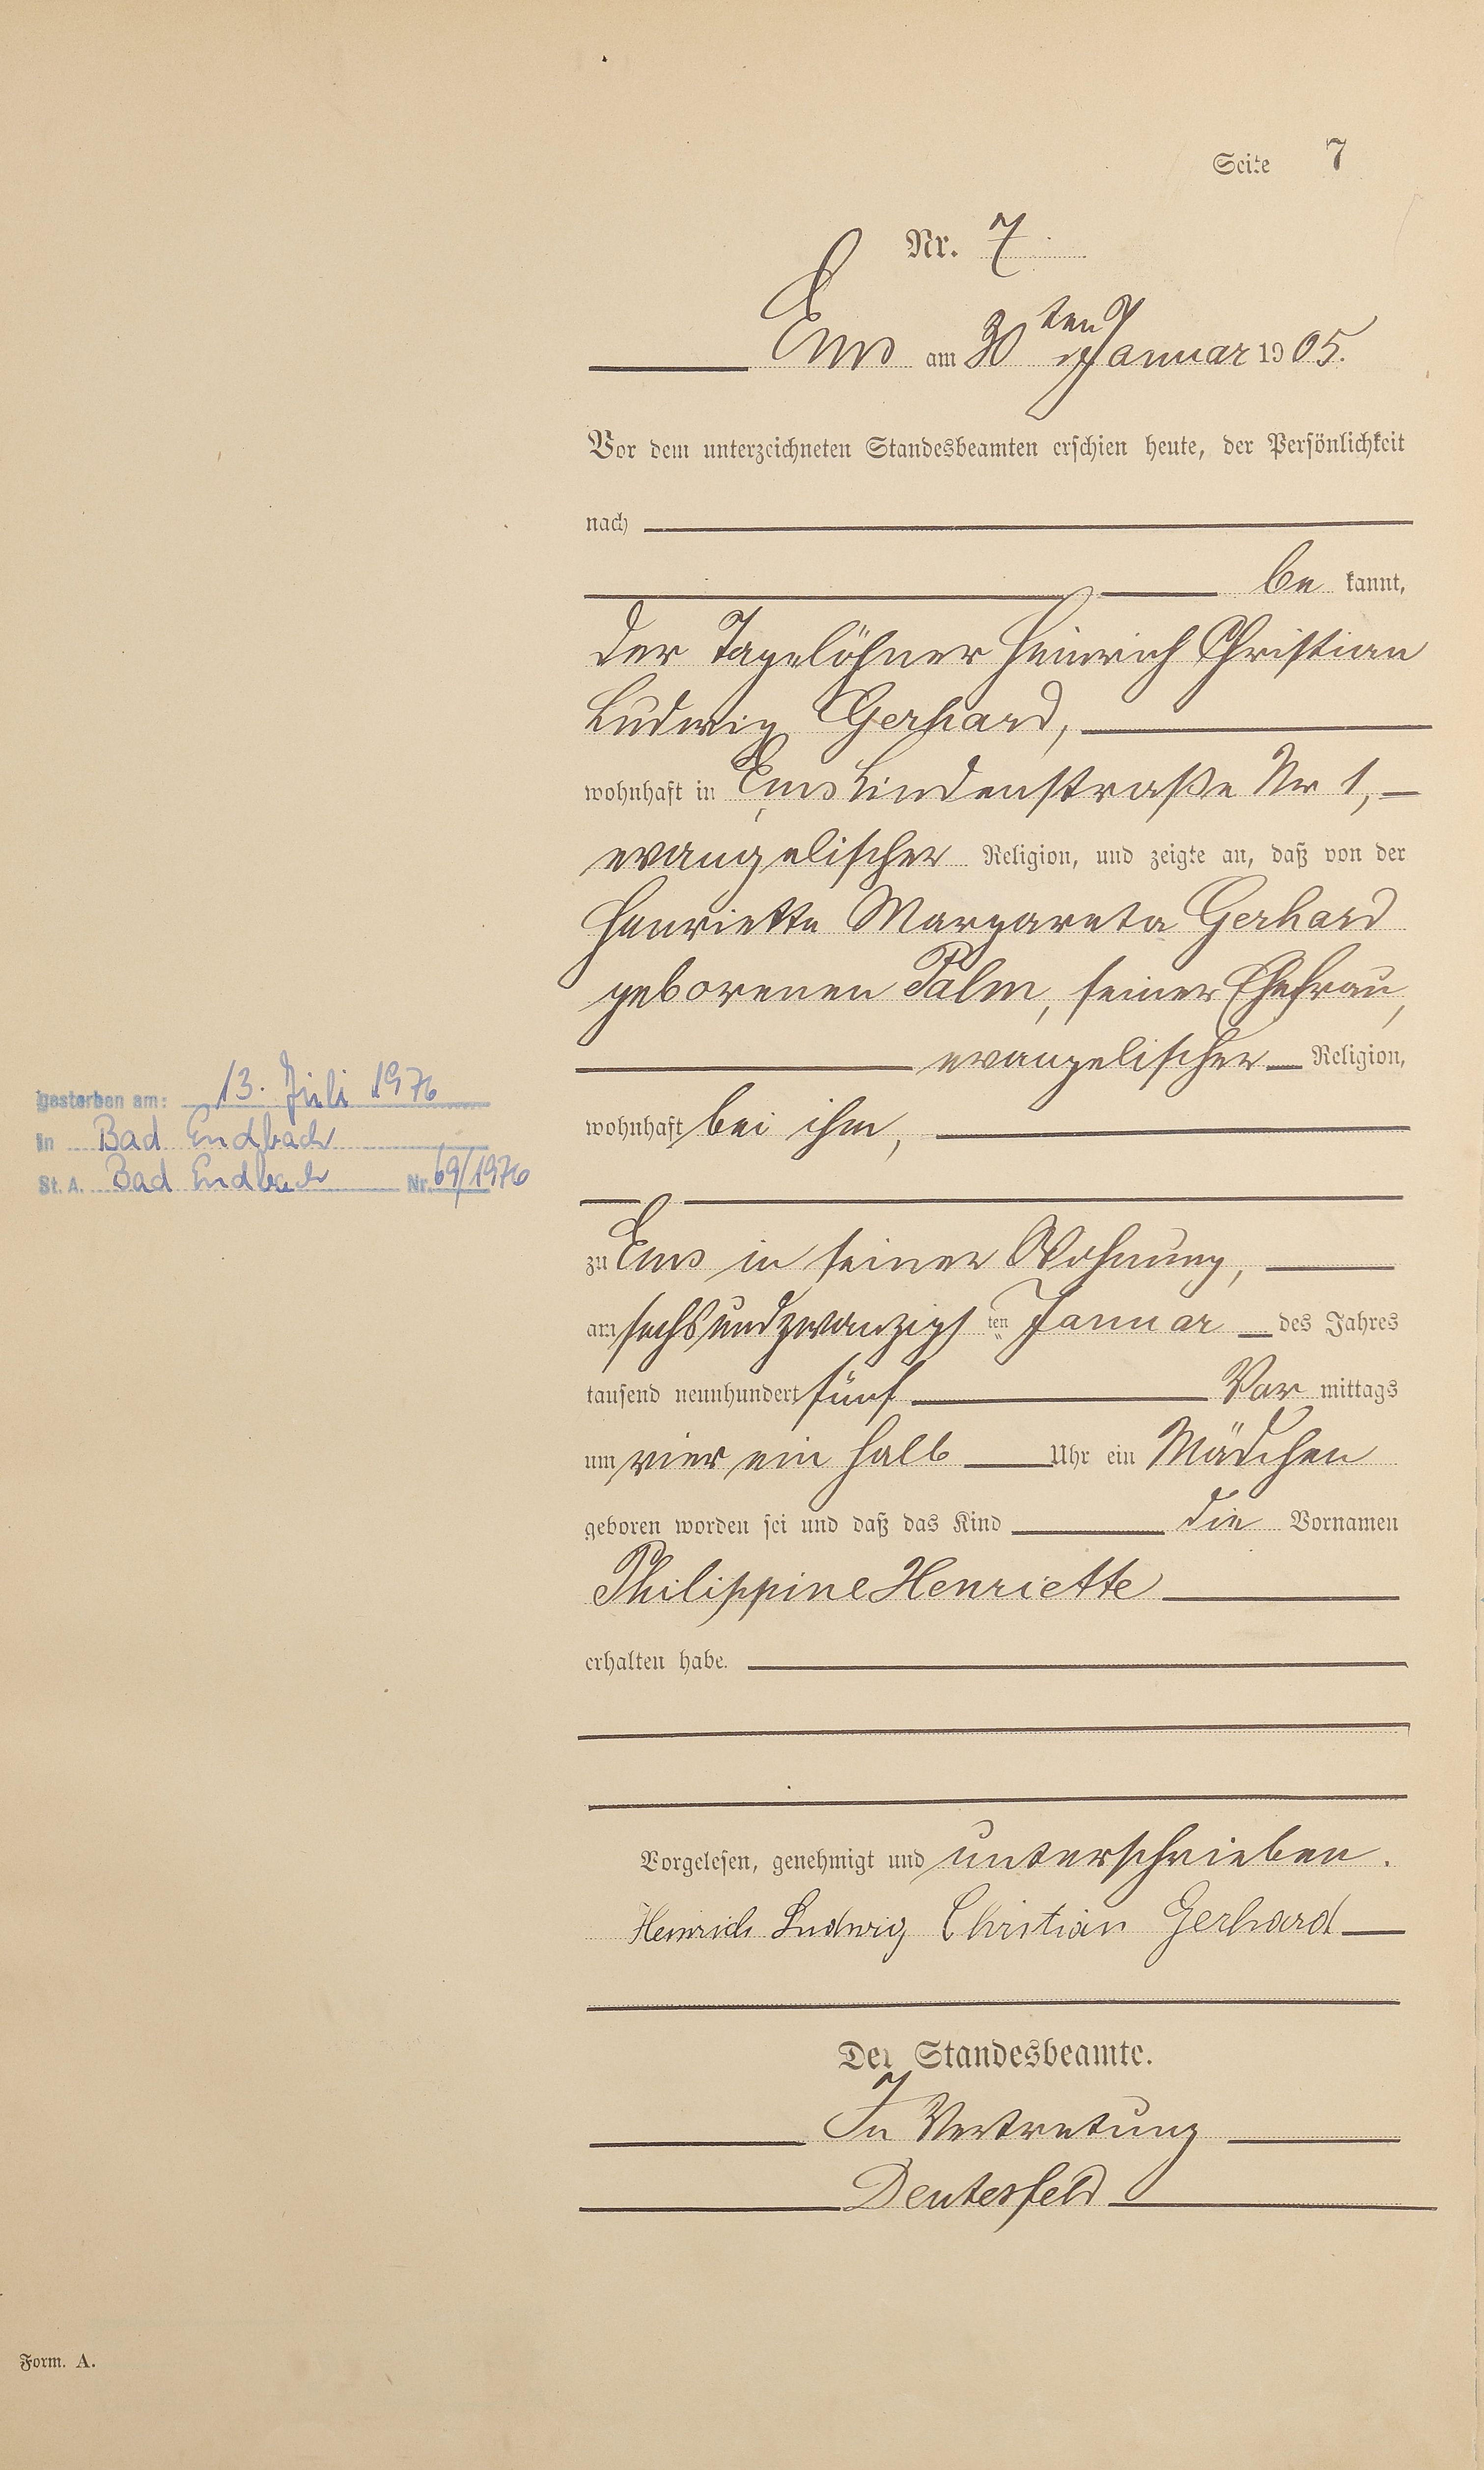 Seite 7
Nr. 7
Ems am 30ten Januar 1905.
Vor dem unterzeichneten Standesbeamten erschien heute, der Persönlichkeit
nach
bekannt,
der Tagelöhner Heinrich Christian
Ludwig Gerhard,
wohnhaft in Ems Lindenstraße Nr 1,
evangelischer Religion, und zeigte an, daß von der
Henriette Margareta Gerhard
geborenen Palm, seiner Ehefrau,
evangelischer Religion,
wohnhaft bei ihm,
gestorben am: 13. Juli 1976
in Bad Endbach
St. A. Bad Endbach Nr. 69/1976
zu Ems in seiner Wohnung,
am sechsundzwanzigsten Januar des Jahres
tausend neunhundert fünf Vormittags
um vier ein halb Uhr ein Mädchen
geboren worden sei und daß das Kind die Vornamen
Philippine Henriette
erhalten habe.
Vorgelesen, genehmigt und unterschrieben.
Heinrich Ludwig Christian Gerhard
Der Standesbeamte.
In Vertretung
Deutesfeld
Form. A.